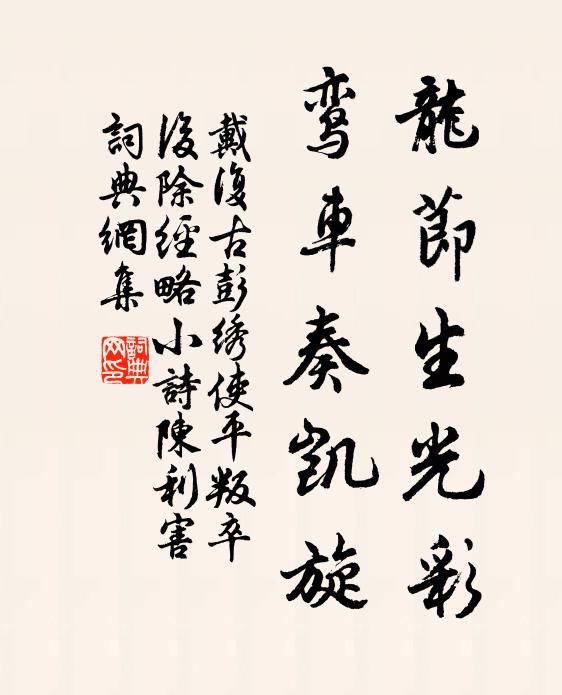 龍節生光彩
鸾車奏凱旋
戴復古彭绣使平叛卒
後除經略小詩陳利害
詞典網集
詞典网印